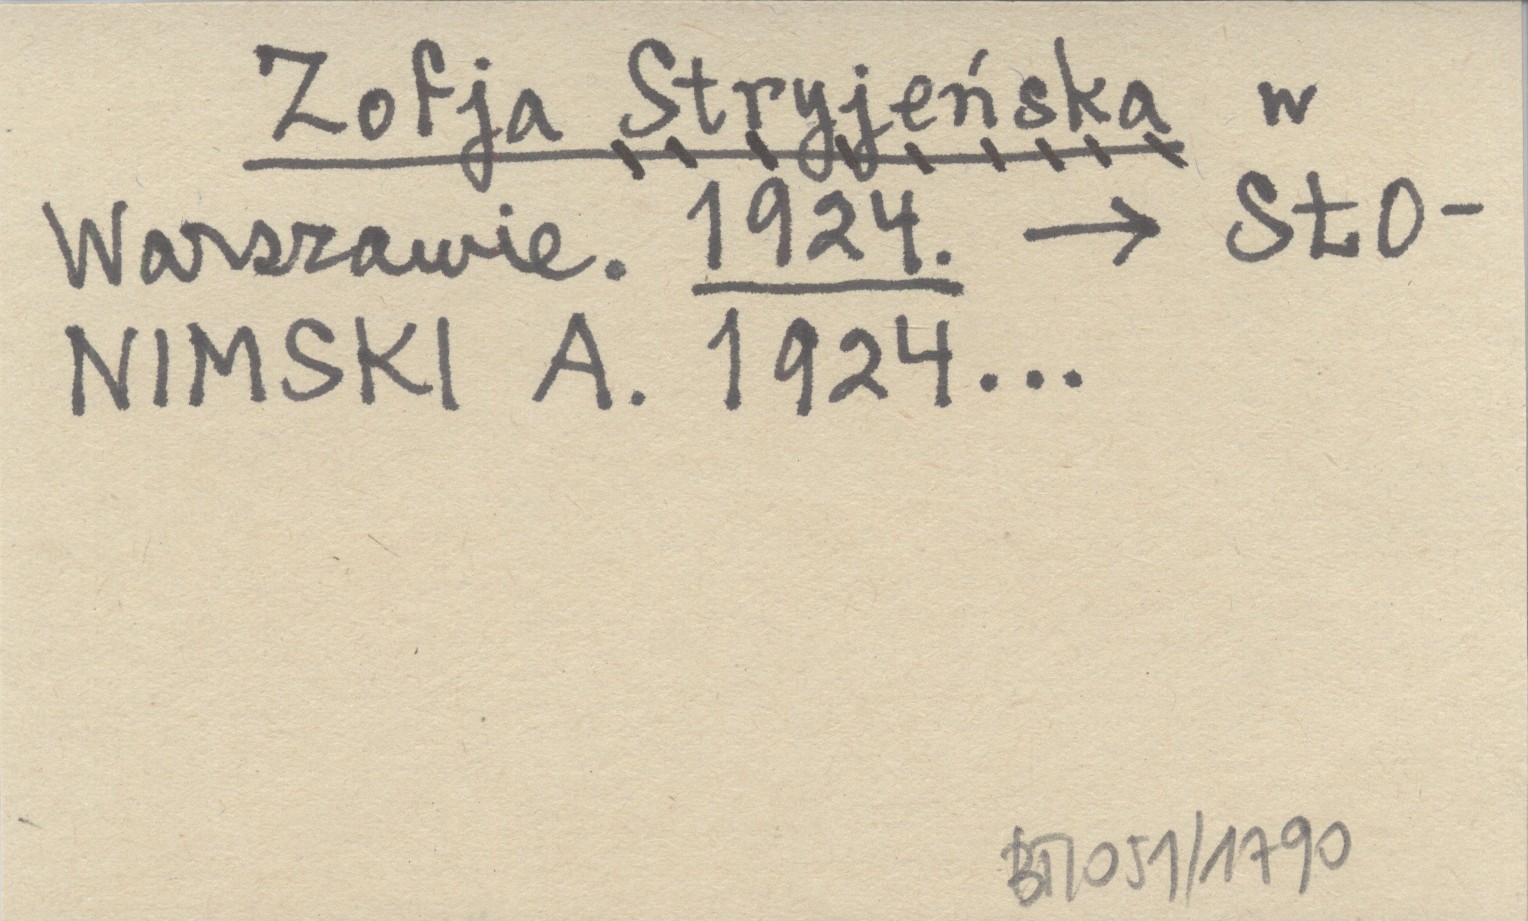 Zofja Stryjeńska w
Warszawie. 1924. → SŁO-
NIMSKI A. 1924...
051/1790